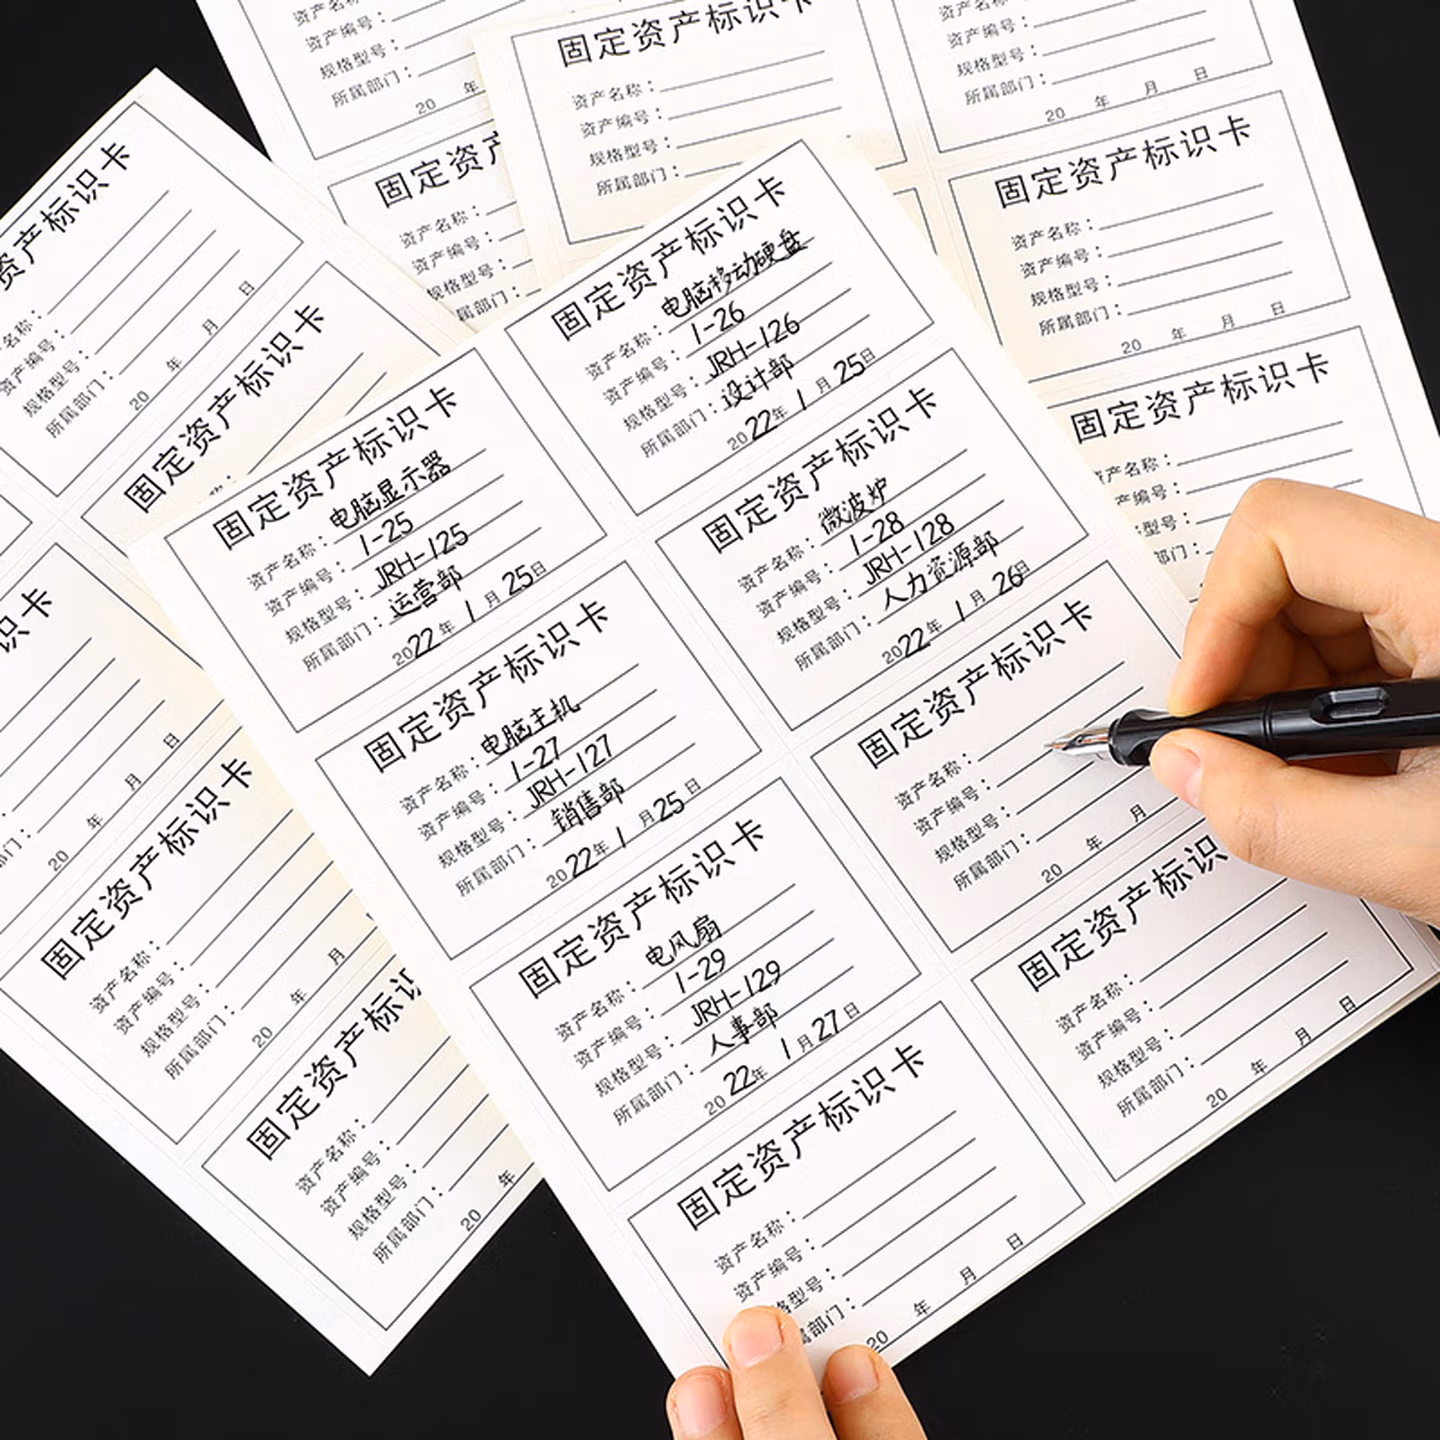 固定资产标识卡
资产名称：电脑移动硬盘
资产编号：1-26
规格型号：JRH-126
所属部门：设计部
2022年1月25日
固定资产标识卡
资产名称：电脑显示器
资产编号：1-25
规格型号：JRH-125
所属部门：运营部
2022年1月25日
固定资产标识卡
资产名称：微波炉
资产编号：1-28
规格型号：JRH-128
所属部门：人力资源部
2022年1月26日
固定资产标识卡
资产名称：电脑主机
资产编号：1-27
规格型号：JRH-127
所属部门：销售部
2022年1月25日
固定资产标识卡
资产名称：
资产编号：
规格型号：
所属部门：
20 年 月
固定资产标识卡
资产名称：电风扇
资产编号：1-29
规格型号：JRH-129
所属部门：人事部
2022年1月27日
固定资产标识
资产名称：
资产编号：
规格型号：
所属部门：
20 年 月 日
固定资产标识卡
资产名称：
资产编号：
格型号：
属部门：
20 年 月 日
资产编号：
规格型号：
所属部门：
20 年
固定资产标识卡
资产名称：
资产编号：
规格型号：
所属部门：
资产编号：
规格型号：
所属部门：
20 年 月 日
固定资产
资产名称：
资产编号：
规格型号：
所属部门：
固定资产标识卡
资产名称：
资产编号：
规格型号：
所属部门：
20 年 月 日
固定资产标识卡
资产名称：
资产编号：
型号：
部门：
资产标识卡
名称：
资产编号：
规格型号：
所属部门：
20 年 月 日
固定资产标识卡
识卡
20 年 月 日
固定资产标识卡
资产名称：
资产编号：
规格型号：
所属部门：
20 年 月
固定资产标识
资产名称：
资产编号：
规格型号：
所属部门：
20 年